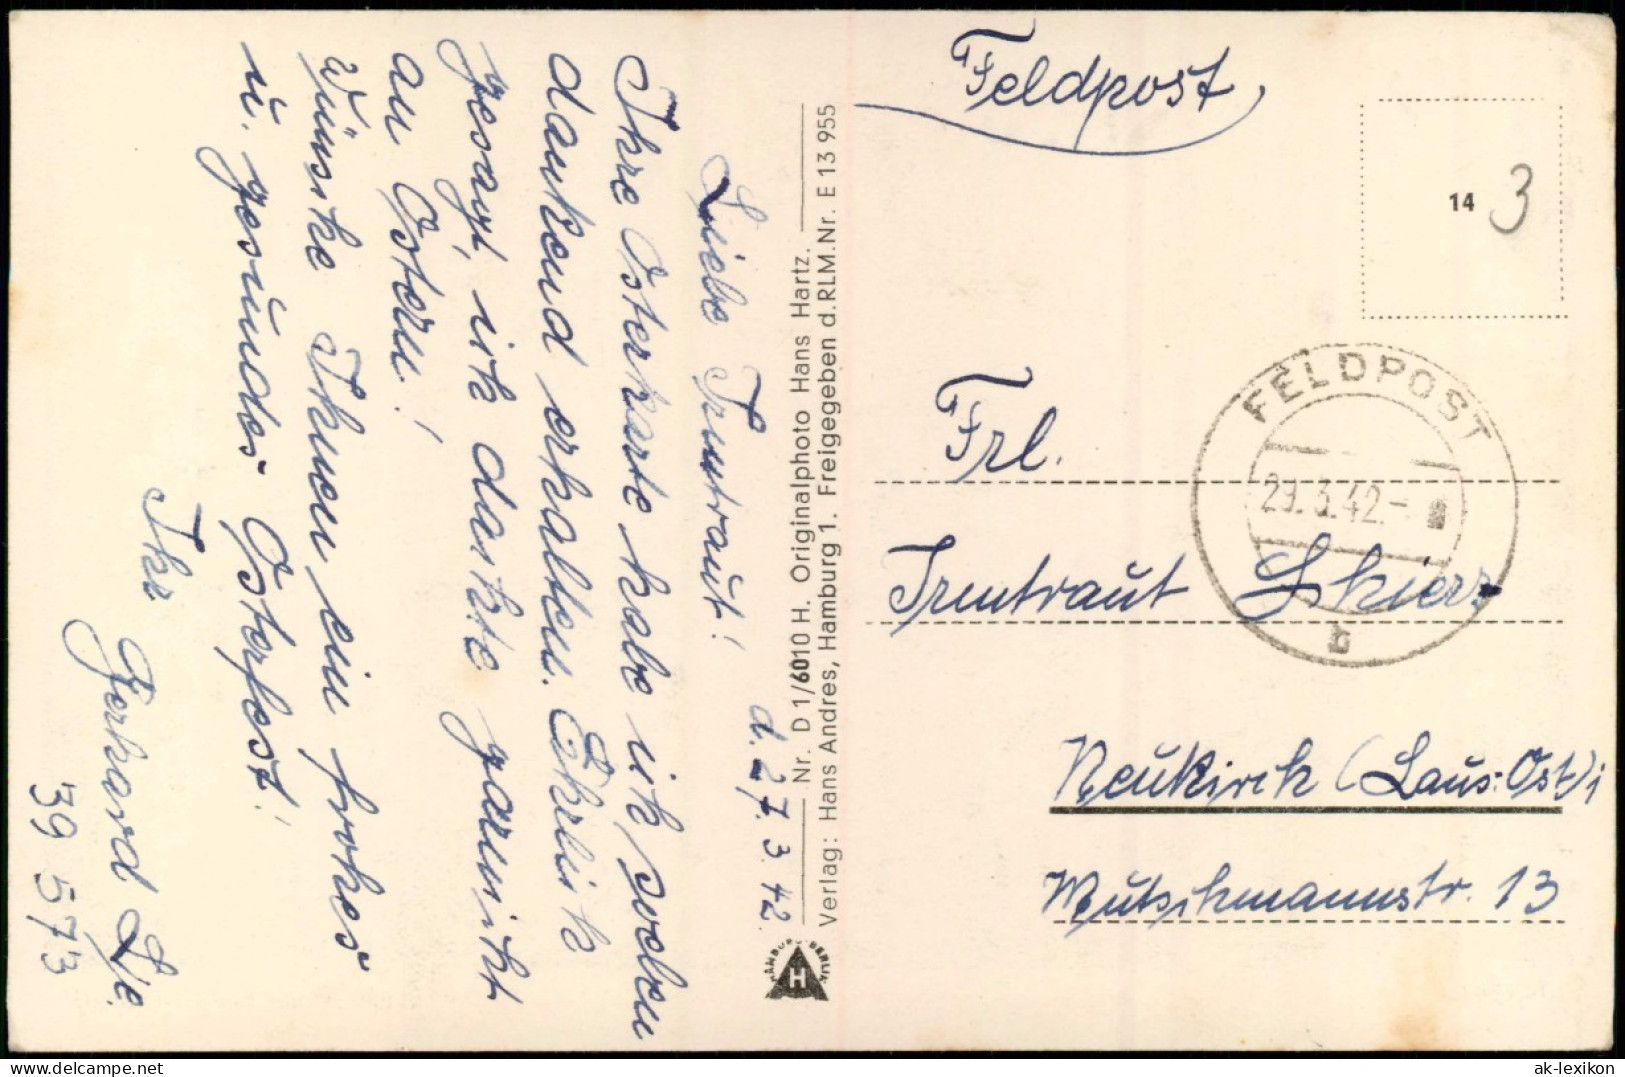 Feldpost
14 3
FELDPOST
29.3.42.-
b
Frl.
Irmtraut Skier
Neukirch (Laus: Ost) i
Wutschmannstr. 13
d. 27.3.42.
Liebe Irmtraut!
Ihre Osterkarte habe ich soeben
dankend erhalten. Ehrlich
gesagt, ich dachte garnicht
an Ostern!
Wünsche Ihnen ein frohes
u. gesundes Osterfest!
Ihr
Gerhard
39 573
Nr. D 1/6010 H. Originalphoto Hans Hartz.
Verlag: Hans Andres, Hamburg 1. Freigegeben d. RLM. Nr. E 13 955
HAMBURG-BERLIN
H
ak-lexikon